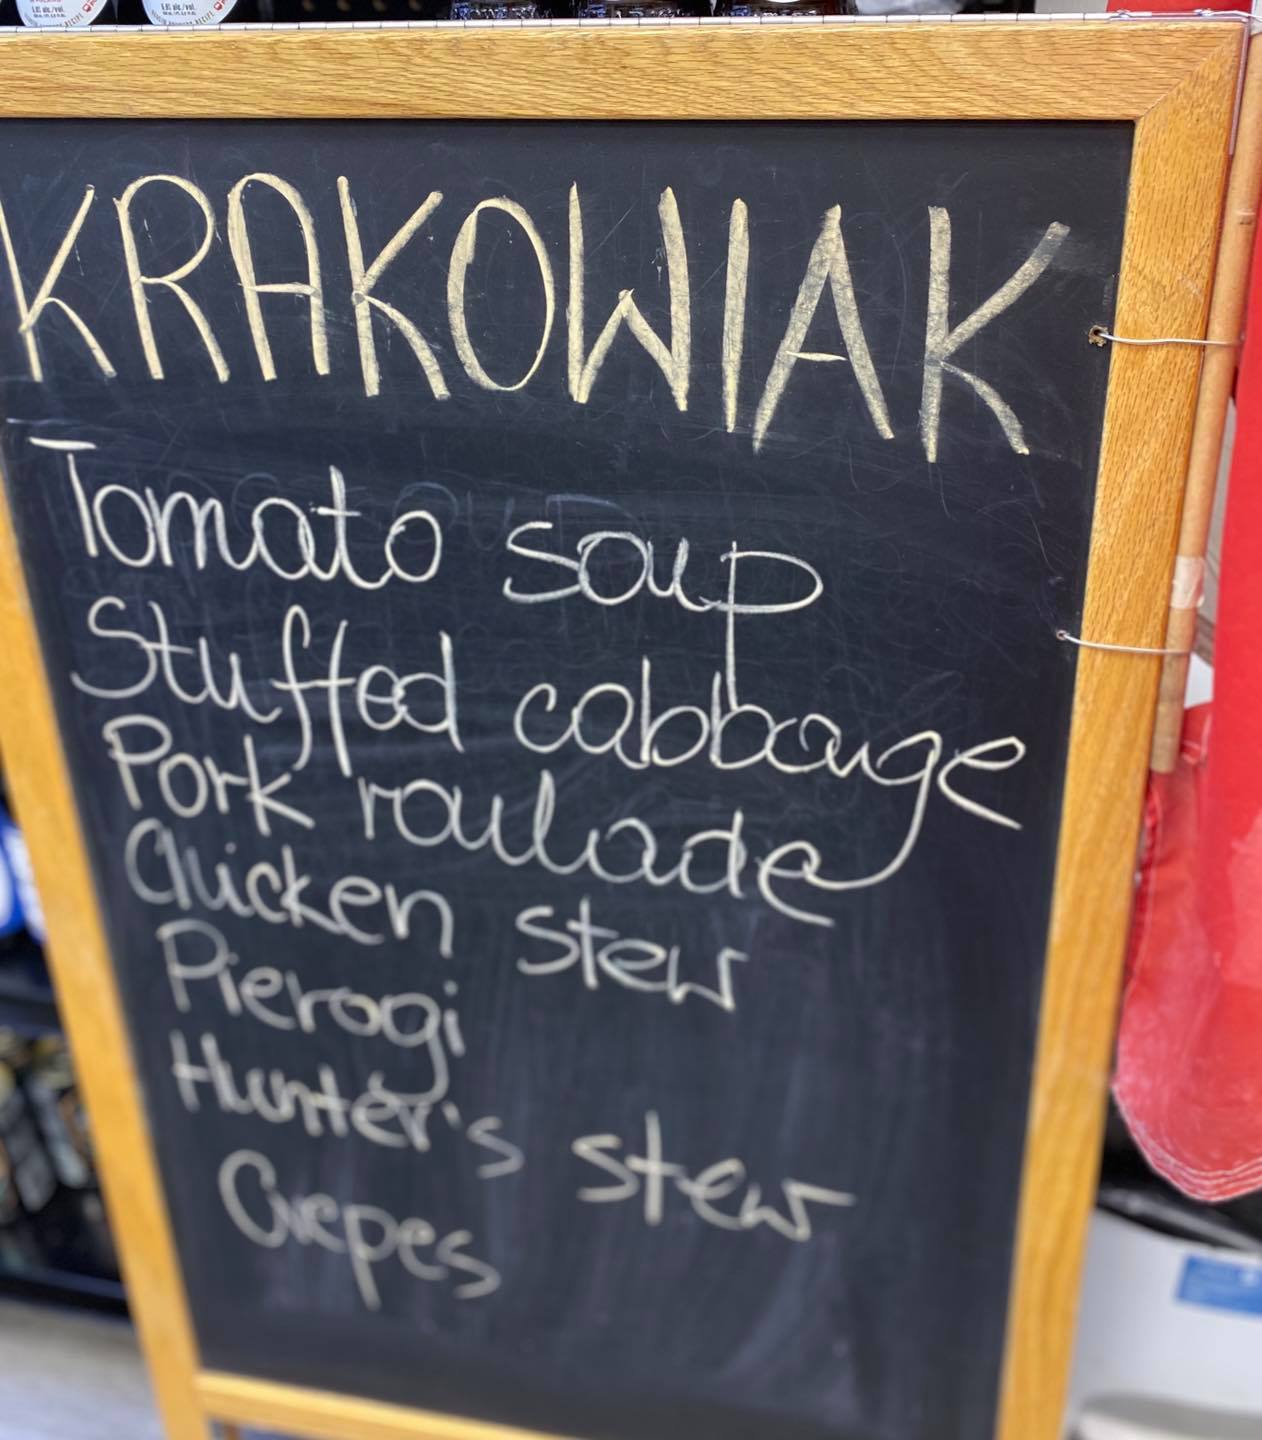 KRAKOWIAK
Tomato soup
Stuffed cabbage
Pork roulade
Chicken stew
Pierogi
Hunter's stew
Crepes